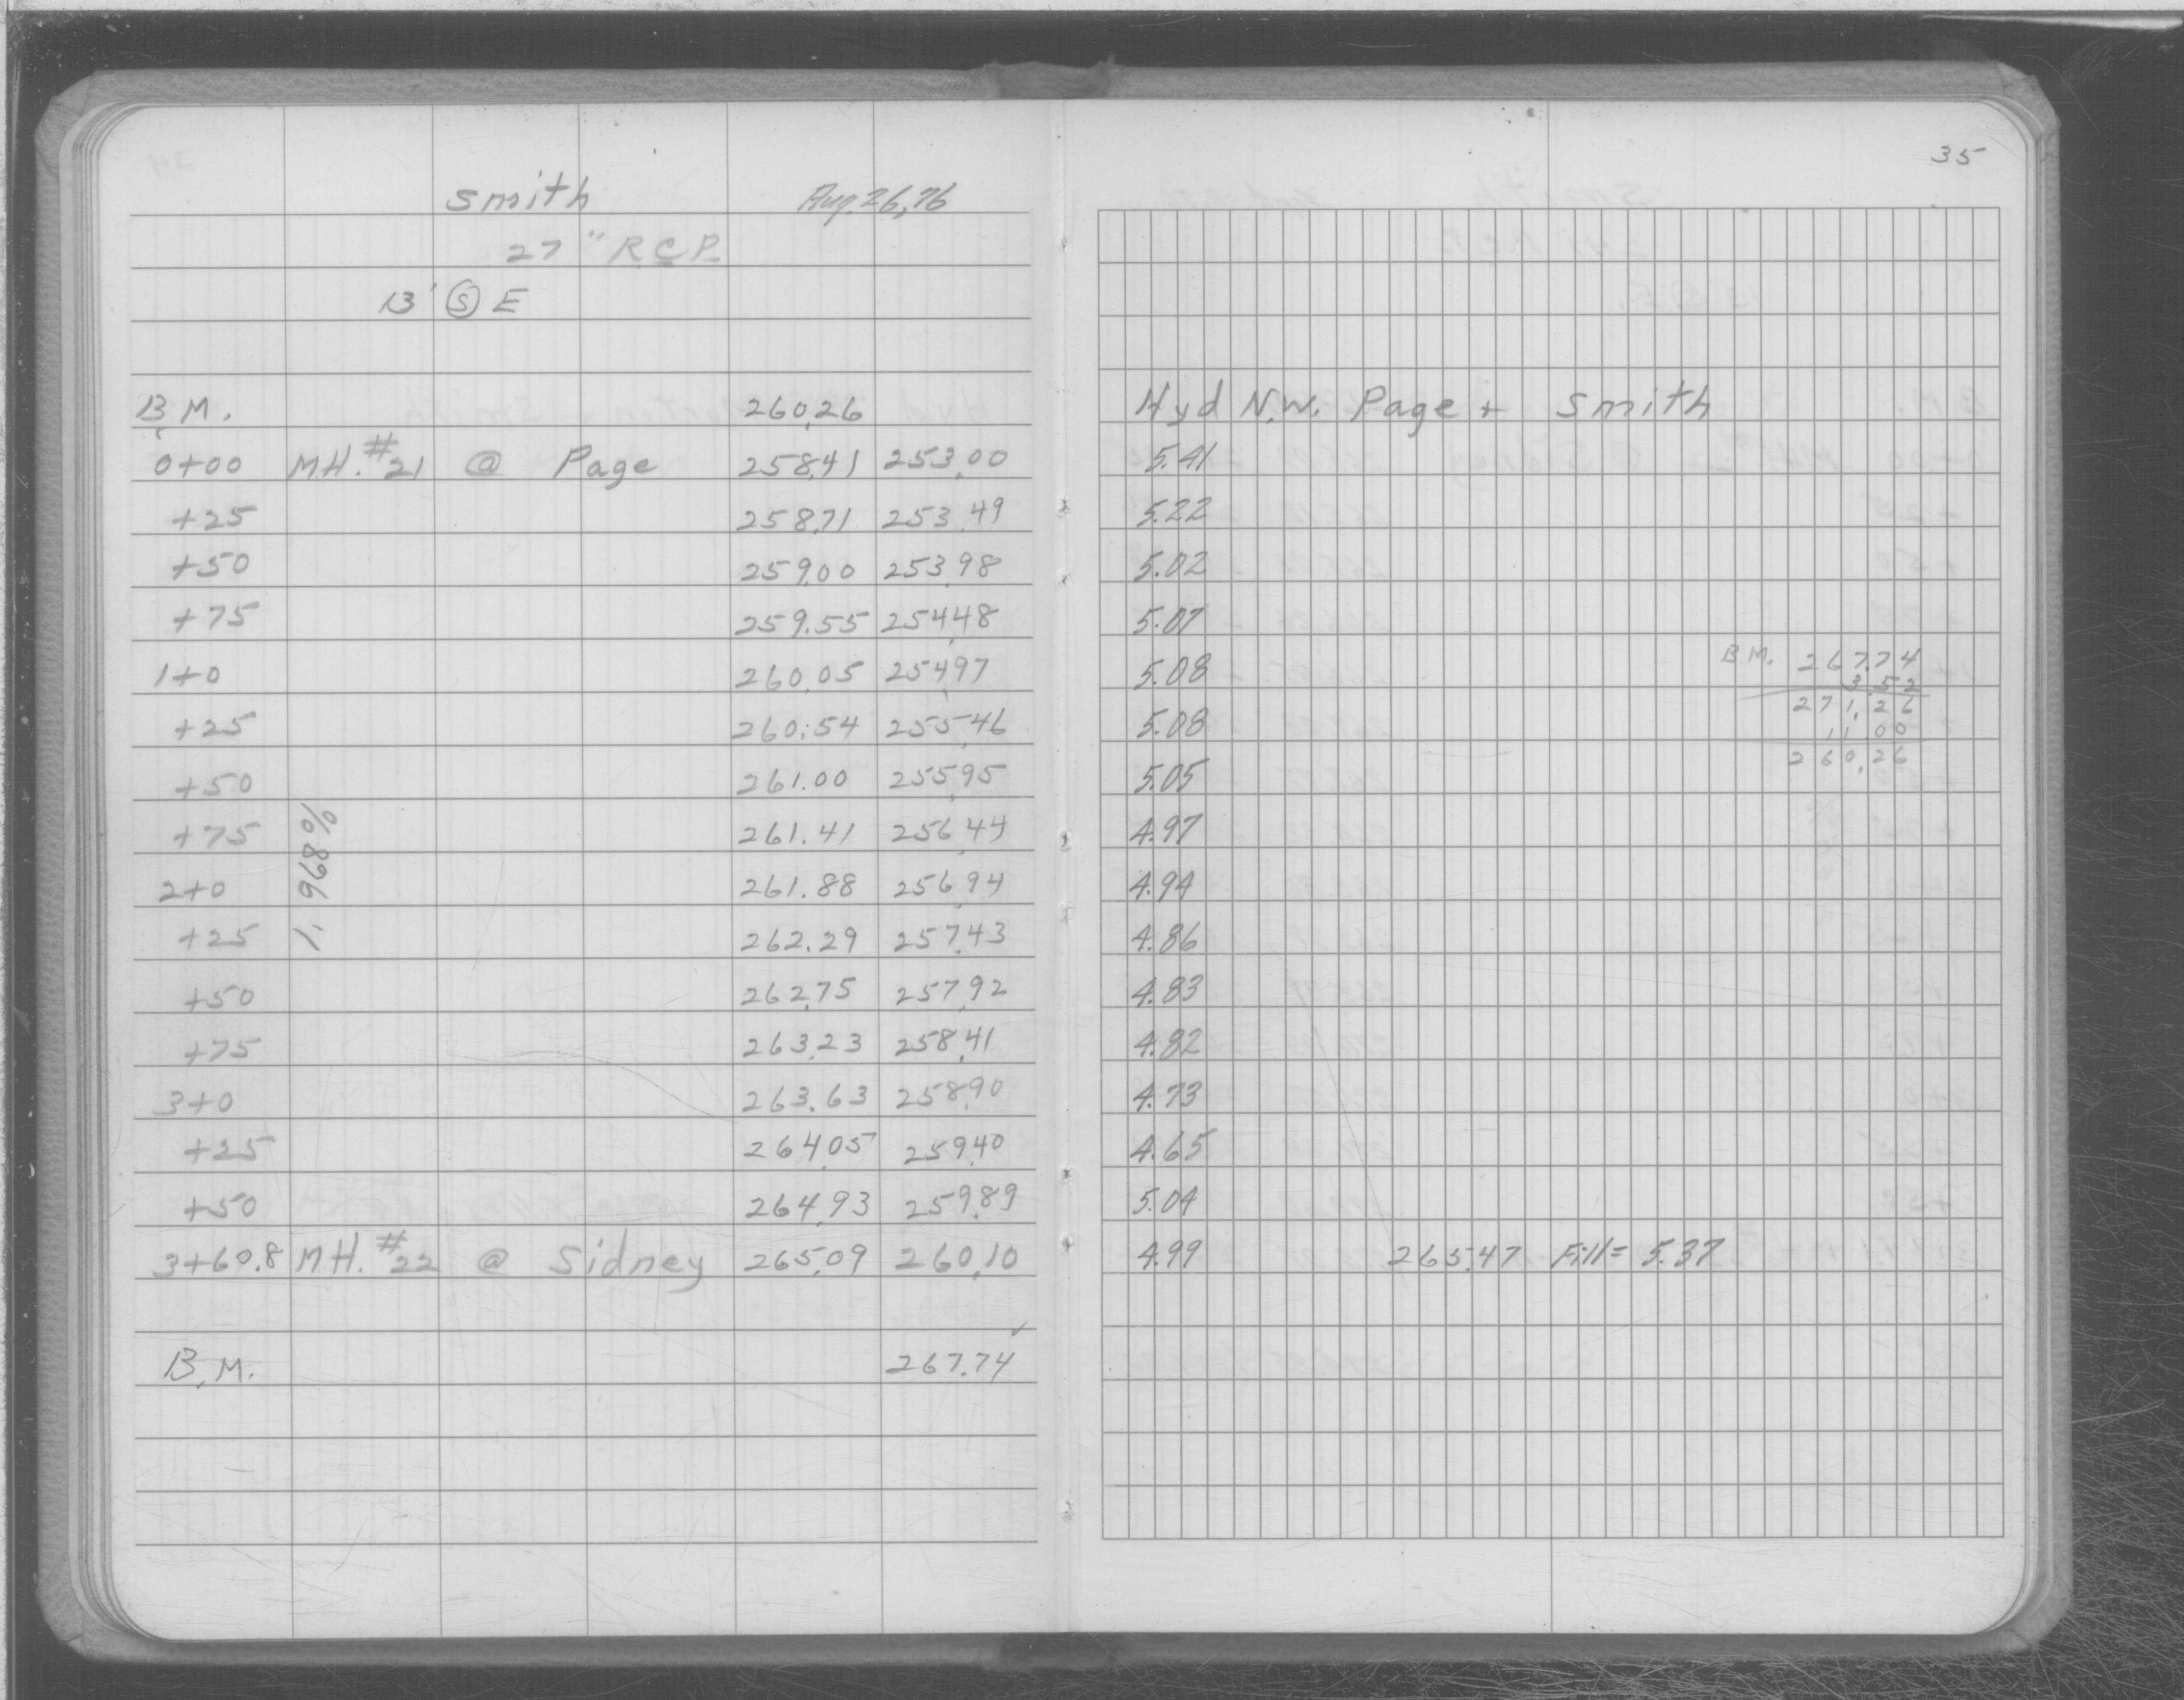 35
Smith Aug. 26, 76
27" RCP
13' Ⓢ E
B.M. 260.26 Hyd N.W. Page + Smith
0+00 M.H. #21 @ Page 258.41 253.00 5.41
+25 258.71 253.49 5.22
+50 259.00 253.98 5.02
+75 259.55 254.48 5.07
1+0 260.05 254.97 5.08
+25 260.54 255.46 5.08
+50 261.00 255.95 5.05
+75 261.41 256.44 4.97
2+0 261.88 256.94 4.94
+25 262.29 257.43 4.86
+50 262.75 257.92 4.83
+75 263.23 258.41 4.82
3+0 263.63 258.90 4.73
+25 264.05 259.40 4.65
+50 264.93 259.89 5.04
3+60.8 M.H. #22 @ Sidney 265.09 260.10 4.99 265.47 Fill = 5.37
B.M. 267.74 ✓
1.968%
B.M. 267.74
3.52
271.26
11 00
260.26